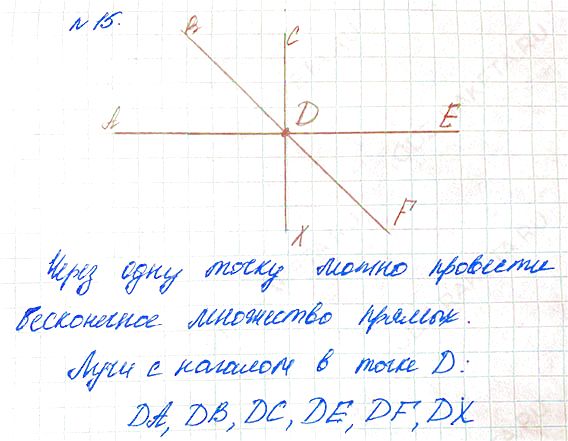 № 15.
B
C
A
D
E
F
X
Через одну точку можно провести
бесконечное множество прямых.
Лучи с началом в точке D:
DA, DB, DC, DE, DF, DX